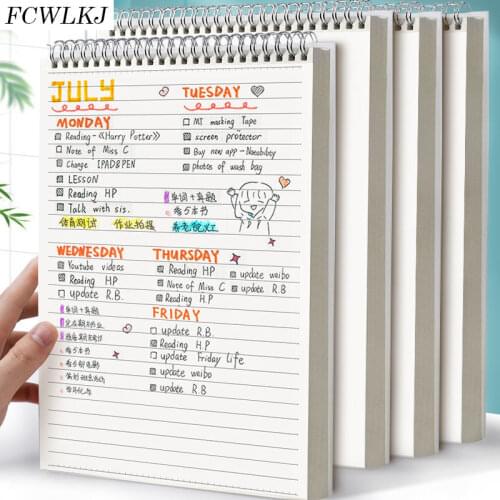 FCWLKJ
JULY
MONDAY
Reading -《Harry Potter》
Note of Miss C
Change IPAD&PEN
LESSON
Reading HP
Talk with sis.
体育测试 作业拍摄
TUESDAY
MT masking Tape
screen protector
Buy new app - Notability
photos of wash bag
单词+真题
看5本书
WEDNESDAY
Youtube videos
Reading HP
update R.B.
单词+真题
看5本书
THURSDAY
Reading HP update weibo
Note of Miss C update R.B
Reading H.P
FRIDAY
update R.B.
Reading H.P
update Friday Life
update weibo
update R.B